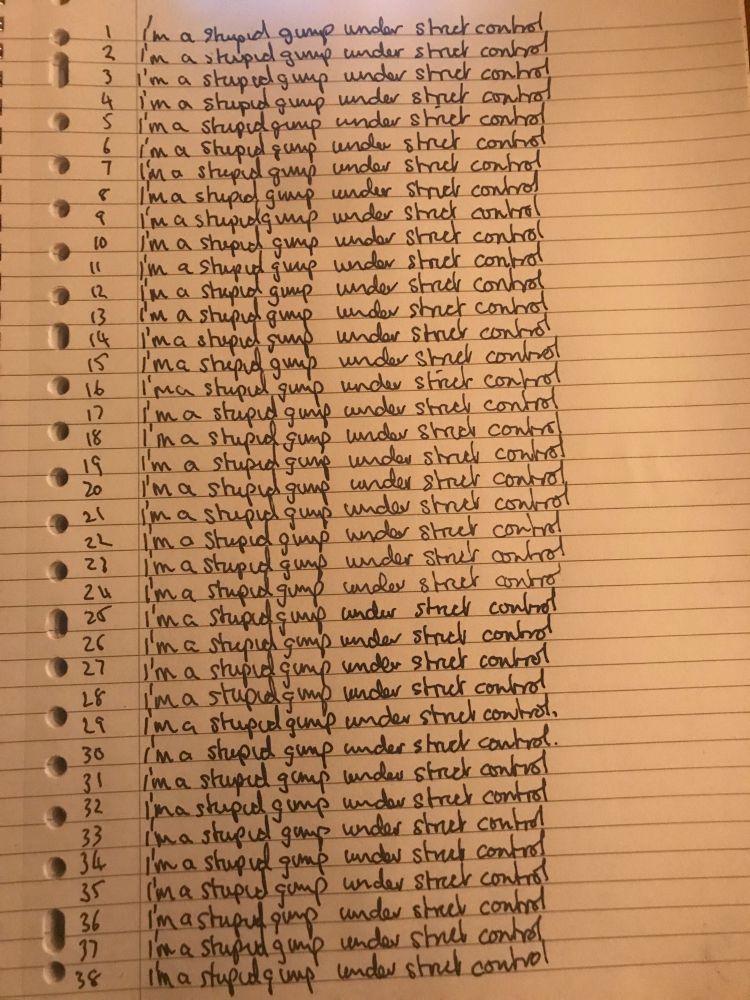 1 I'm a stupid gimp under strict control
2 I'm a stupid gimp under strict control
3 I'm a stupid gimp under strict control
4 I'm a stupid gimp under strict control
5 I'm a stupid gimp under strict control
6 I'm a stupid gimp under strict control
7 I'm a stupid gimp under strict control
8 I'm a stupid gimp under strict control
9 I'm a stupid gimp under strict control
10 I'm a stupid gimp under strict control
11 I'm a stupid gimp under strict control
12 I'm a stupid gimp under strict control
13 I'm a stupid gimp under strict control
14 I'm a stupid gimp under strict control
15 I'm a stupid gimp under strict control
16 I'm a stupid gimp under strict control
17 I'm a stupid gimp under strict control
18 I'm a stupid gimp under strict control
19 I'm a stupid gimp under strict control
20 I'm a stupid gimp under strict control
21 I'm a stupid gimp under strict control
22 I'm a stupid gimp under strict control
23 I'm a stupid gimp under strict control
24 I'm a stupid gimp under strict control
25 I'm a stupid gimp under strict control
26 I'm a stupid gimp under strict control
27 I'm a stupid gimp under strict control
28 I'm a stupid gimp under strict control
29 I'm a stupid gimp under strict control.
30 I'm a stupid gimp under strict control.
31 I'm a stupid gimp under strict control
32 I'm a stupid gimp under strict control
33 I'm a stupid gimp under strict control
34 I'm a stupid gimp under strict control
35 I'm a stupid gimp under strict control
36 I'm a stupid gimp under strict control
37 I'm a stupid gimp under strict control
38 I'm a stupid gimp under strict control